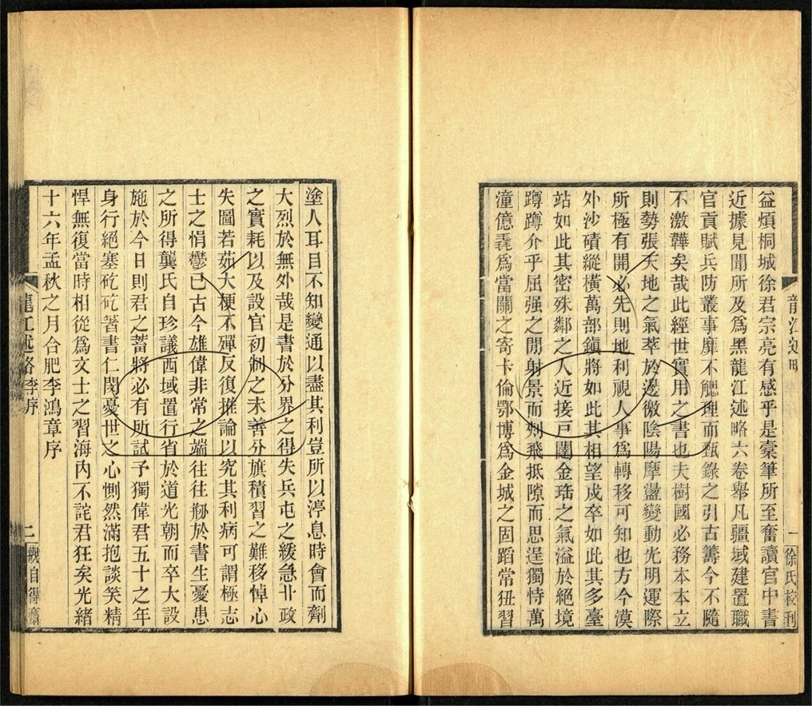 益煩桐城徐君宗亮有感乎是橐筆所至奮讀官中書
近據見聞所及為黑龍江述略六卷舉凡疆域建置職
官貢賦兵防叢事靡不𩠐理而甄錄之引古籌今不隨
不激韙矣哉此經世實用之書也夫樹國必務本本立
則勢張天地之氣萃於邊徼陰陽摩盪變動光明運際
所極有開必先則地利視人事爲轉移可知也方今漠
外沙磧縱橫萬部鎮將如此其相望戍卒如此其多臺
站如此其密殊鄰之人近接戶闥金珤之氣溢於絕境
蹲蹲介乎屈强之閒射景而𠛬飛抵隙而思逞獨恃萬
潼億毳爲當關之寄卡倫鄂博爲金城之固蹈常狃習
龍江述略
一
徐氏校刊
塗人耳目不知變通以盡其利豈所以渟息時會而劑
大烈於無外哉是書於分界之得失兵屯之緩急北政
之實耗以及設官初制之未善分旗積習之難移悼心
失圖若茹大梗不殫反復推論以究其利病可謂極志
士之悁鬱已古今雄偉非常之端往往剙於書生憂患
之所得龔氏自珍議西域置行省於道光朝而卒大設
施於今日則君之蓄將必有所試予獨偉君五十之年
身行絕塞矻矻著書仁閔憂世之心惻然滿抱談笑精
悍無復當時相從爲文士之習海內不詫君狂矣光緒
十六年孟秋之月合肥李鴻章序
龍江述略李序
二
觀自得齋